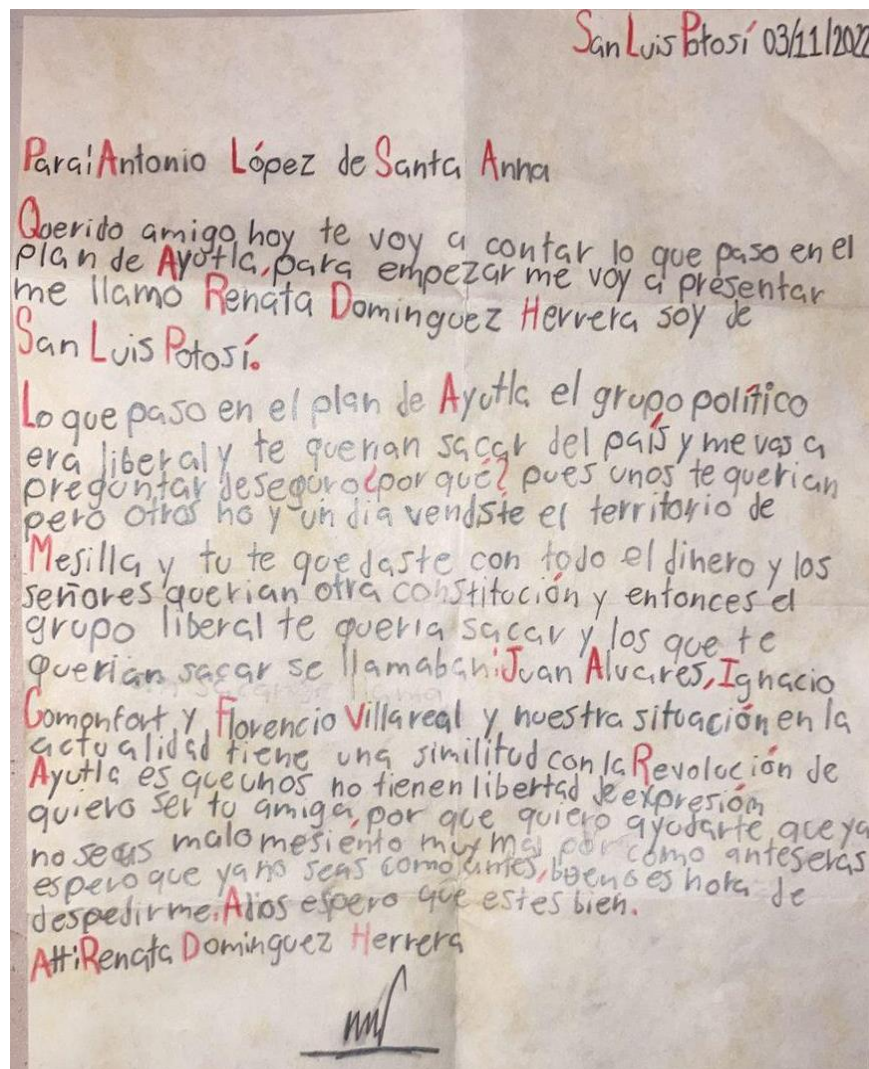 San Luis Potosí 03/11/2022
Para: Antonio López de Santa Anna
Querido amigo hoy te voy a contar lo que paso en el
plan de Ayutla, para empezar me voy a presentar
me llamo Renata Dominguez Herrera soy de
San Luis Potosí.
Lo que paso en el plan de Ayutla el grupo político
era liberal y te querian sacar del país y me vas a
preguntar deseguro ¿por qué? pues unos te querian
pero otros no y un dia vendiste el territorio de
Mesilla y tu te quedaste con todo el dinero y los
señores querian otra constitución y entonces el
grupo liberal te queria sacar y los que te
querian sacar se llamaban: Juan Alvares, Ignacio
Comonfort y Florencio Villareal y nuestra situación en la
actualidad tiene una similitud con la Revolución de
Ayutla es que unos no tienen libertad de expresión
quiero ser tu amiga, por que quiero ayudarte, que ya
no seas malo mesiento muy mal por como anteseras
espero que ya no seas como antes, bueno es hora de
despedirme. Adios espero que estes bien.
Att: Renata Dominguez Herrera